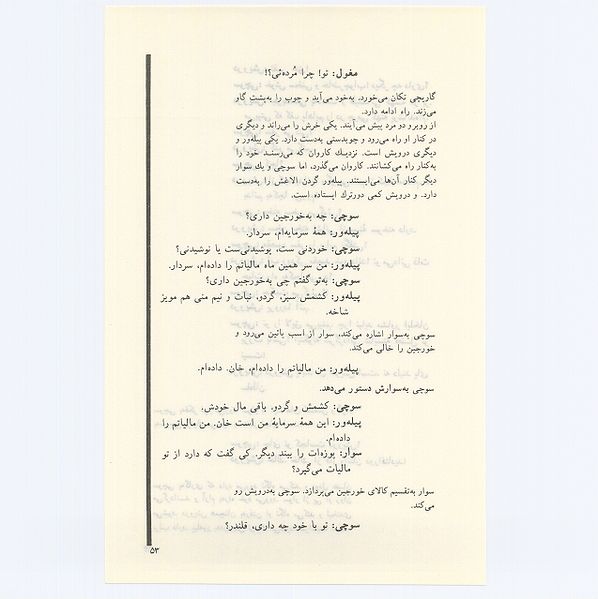 مغول: تو! چرا مُرده‌ئی؟!
گاریچی تکان می‌خورد. به‌خود می‌آید و چوب را به‌پشت گاو
می‌زند. راه ادامه دارد.
از روبرو دو مرد پیش می‌آیند. یکی خرش را می‌راند و دیگری
در کنار او راه می‌رود و چوبدستی به‌دست دارد. یکی پیله‌ور و
دیگری درویش است. نزدیك کاروان که می‌رسند خود را
به‌کنار راه می‌کشانند. کاروان می‌گذرد، اما سوچی و یك سوار
دیگر کنار آن‌ها می‌ایستند. پیله‌ور گردن الاغش را به‌دست
دارد. و درویش کمی دورترك ایستاده است.
سوچی: چه به‌خورجین داری؟
پیله‌ور: همهٔ سرمایه‌ام، سردار.
سوچی: خوردنی ست، پوشیدنی‌ست یا نوشیدنی؟
پیله‌ور: من سر همین ماه مالیاتم را داده‌ام، سردار.
سوچی: به‌تو گفتم چی به‌خورجین داری؟
پیله‌ور: کشمش سبز، گردو، نبات و نیم منی هم مویز
شاخه.
سوچی به‌سوار اشاره می‌کند. سوار از اسب پائین می‌رود و
خورجین را خالی می‌کند.
پیله‌ور: من مالیاتم را داده‌ام، خان. داده‌ام.
سوچی به‌سوارش دستور می‌دهد.
سوچی: کشمش و گردو. باقی مال خودش.
پیله‌ور: این همهٔ سرمایهٔ من است خان. من مالیاتم را
داده‌ام.
سوار: پوزه‌ات را ببند دیگر. کی گفت که دارد از تو
مالیات می‌گیرد؟
سوار به‌تقسیم کالای خورجین می‌پردازد. سوچی به‌درویش رو
می‌کند.
سوچی: تو با خود چه داری، قلندر؟
۵۳